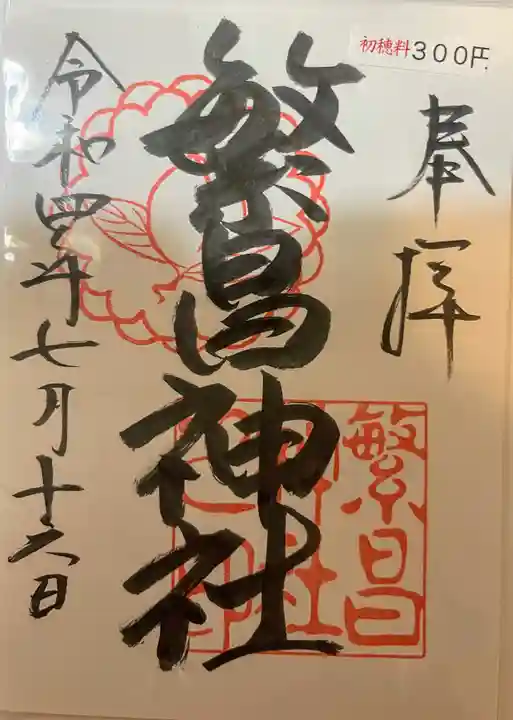 初穂料300円
奉拝
繁昌神社
繁昌
神社
之印
令和四年七月十六日